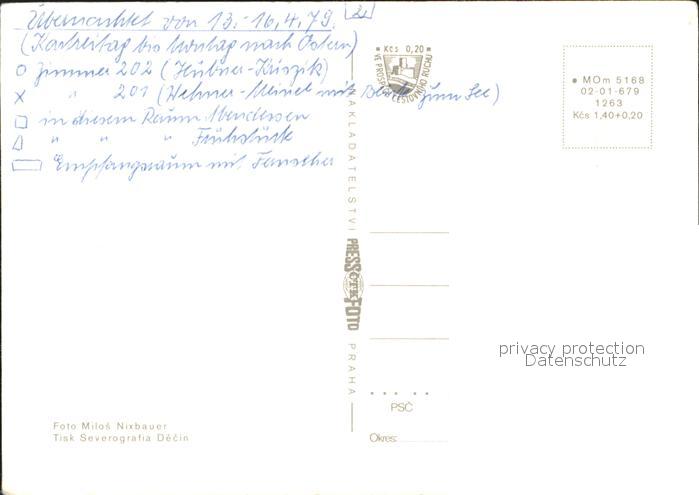 Übernachtet von 13.-16.4.79. 2
(Karfreitag bis Montag nach Ostern)
o Zimmer 202 (Hübner-Kriszik)
x " 201 (Wehner-Meinel mit Blick zum See)
□ in diesem Raum Abendessen
△ " " " Frühstück
▭ Empfangsraum mit Fernseher
Kčs 0,20
VE PROSPĚCH CESTOVNÍHO RUCHU
MOm 5168
02-01-679
1263
Kčs 1,40+0,20
NAKLADATELSTVÍ
PRESSFOTO
ČTK
PRAHA
privacy protection
Datenschutz
PSČ
Okres:
Foto Miloš Nixbauer
Tisk Severografia Děčín